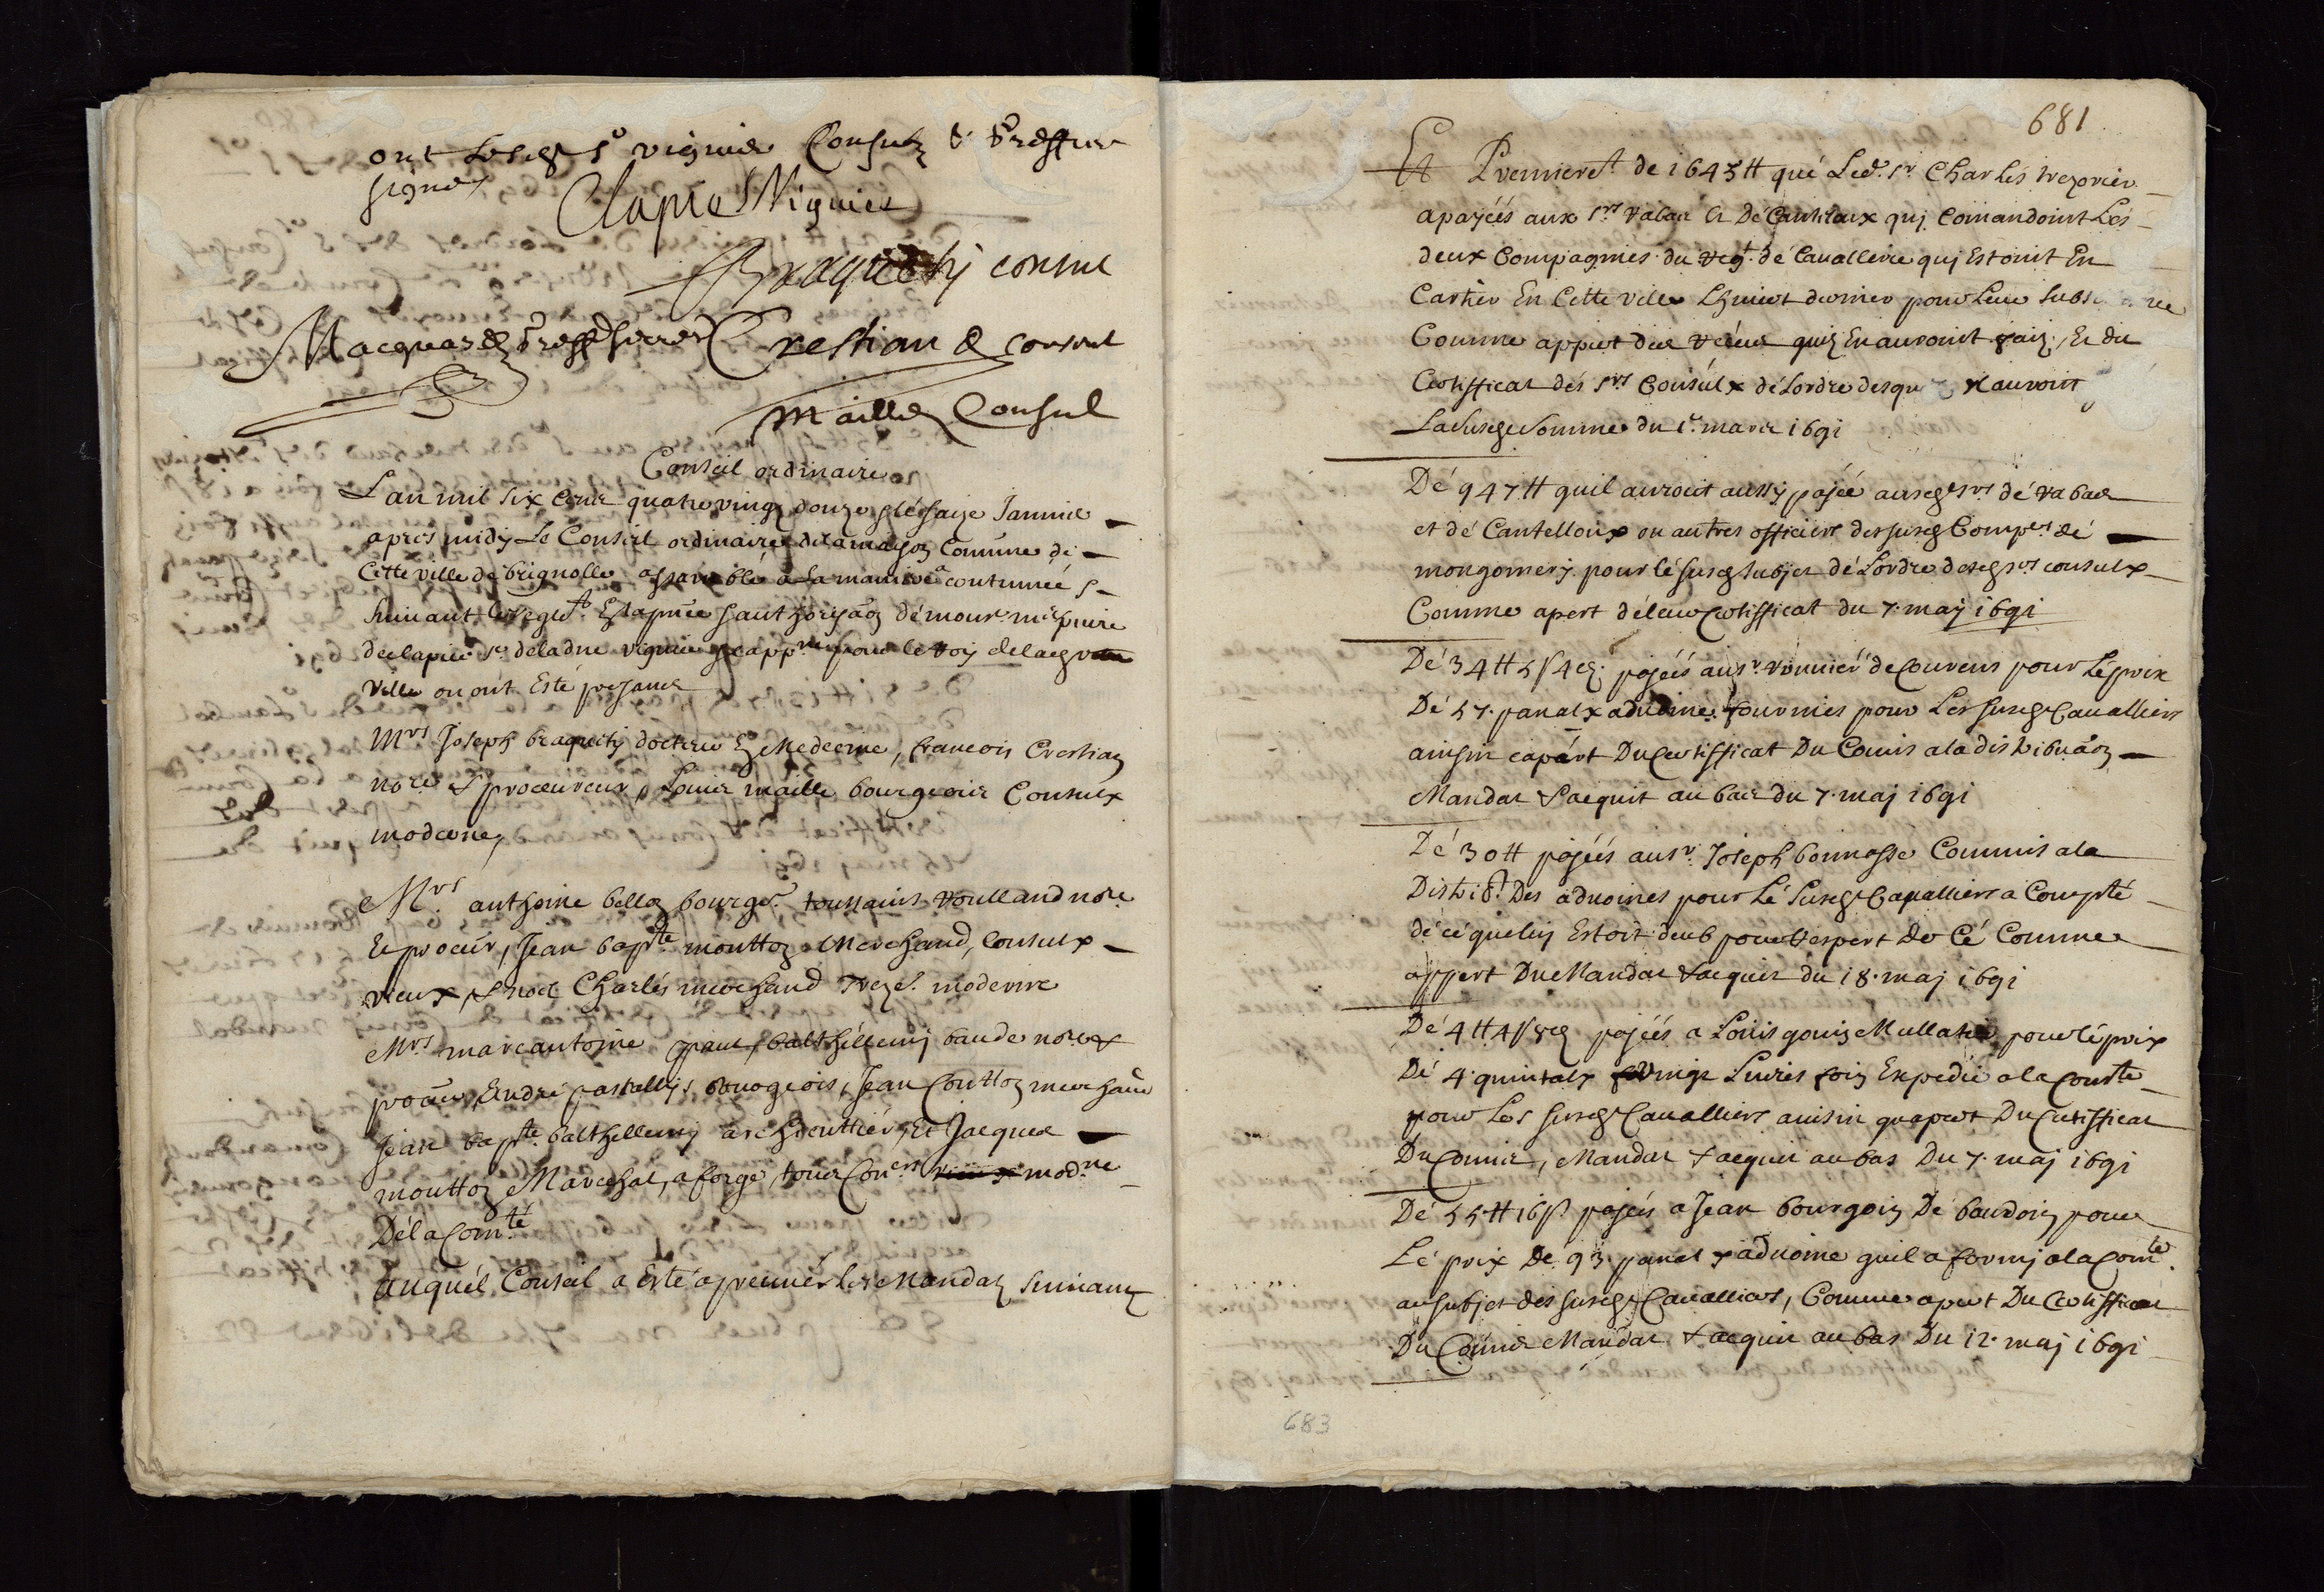 ont lesdts sr viguier Consulz & Greffier
signes
Clapie Viguier
Braquety consul
Macquar Greff
Crestian consul
Maille Consul
Conseil ordinaire
L an mil six cens quatre vingz douze & le saize Januier
apres midy Le Conseil ordinaire de la mayson Comune de
Cette ville de brignolle assamblé a La maniere acoutumée
Suiuant le reglt. Et apres l'authorizaon de mour. mre pierre
de clapie sr. de ladne viguier pour le Roy de lad
Ville ou ont Esté presans
Mrs Joseph braquety docteur En Medecine, francois Crestian
nore & procureur, Louis maille bourgeois Consulx
modernes
Mrs. anthoine bellon bourgs. toussains Roulland nore
Et procur, Jean bapte moutton Marchand, Consulx
vieux, & noel Charles marchand Trezr. moderne
Mrs. marc antoine paul, balthillemy baude nores
procur, André pastallis bourgeois, Jean Coutton marchand
Jean bapte. balthellemy Et Jacques
moutton Marechal, a forge, tous Coners modne
De la Comté
Auquel Conseil a Esté apreuués les Mandaz suiuanz
681
Et Premieret. de 1645 tt que Led. sr Charles trezorier
a payées aux srs Rabar Et De Canteloux quj Comandoint Les
deux Compagnies du regt. de Cauallerie quj Estoint En
Cartier En Cette ville Lhiuert dernier pour Leur
Comme appert des receus quilz En auroint faiz, Et du
Certifficat des srs Consulx de Lordre auroint
La susdte Somme du 1er mars 1691
De 947 tt quil auroit aussy payée ausdts srs de Rabar
et de Cantelloux ou autres officiers des susdts Comps. de
mongomery pour le susdt subjet de Lordre desdts srs consulx
Comme apert de leur Certifficat du 7. may 1691
De 34 tt 5 s 4 d. payées au sr. de Courens pour Le prix
De 57. panalx aduoine fournies pour Les susdts Caualliers
ainsin capert Du Certifficat Du Comis a la distribuaon
Mandat & acquit au bas du 7. maj 1691
De 30 tt payées au sr. Joseph bonnasse Commis a la
Distribt. Des aduoines pour Le susdts Caualliers a Compte
de ce queluy Estoit deub pour Lespert De Ce Comme
appert Du Mandat & acquit du 18. maj 1691
De 4 tt 4 s 8 d payées a Louis gouin Mullatier pour le prix
De 4. quintalx & vingt Liures foin Expedié a la Comte
pour Les susdts Caualliers ainsin quapert Du Certifficat
Du Comis, Mandat & acquit au bas Du 7. maj 1691
De 55 tt 16 s. payées a Jean bourgoin De baudoin pour
Le prix De 93. panalx aduoine quil a fornj a la Comte.
au subjet des susdts Caualliers, Comme apert Du Certifficat
Du Comis Mandat & acquit au bas Du 12. maj 1691
683